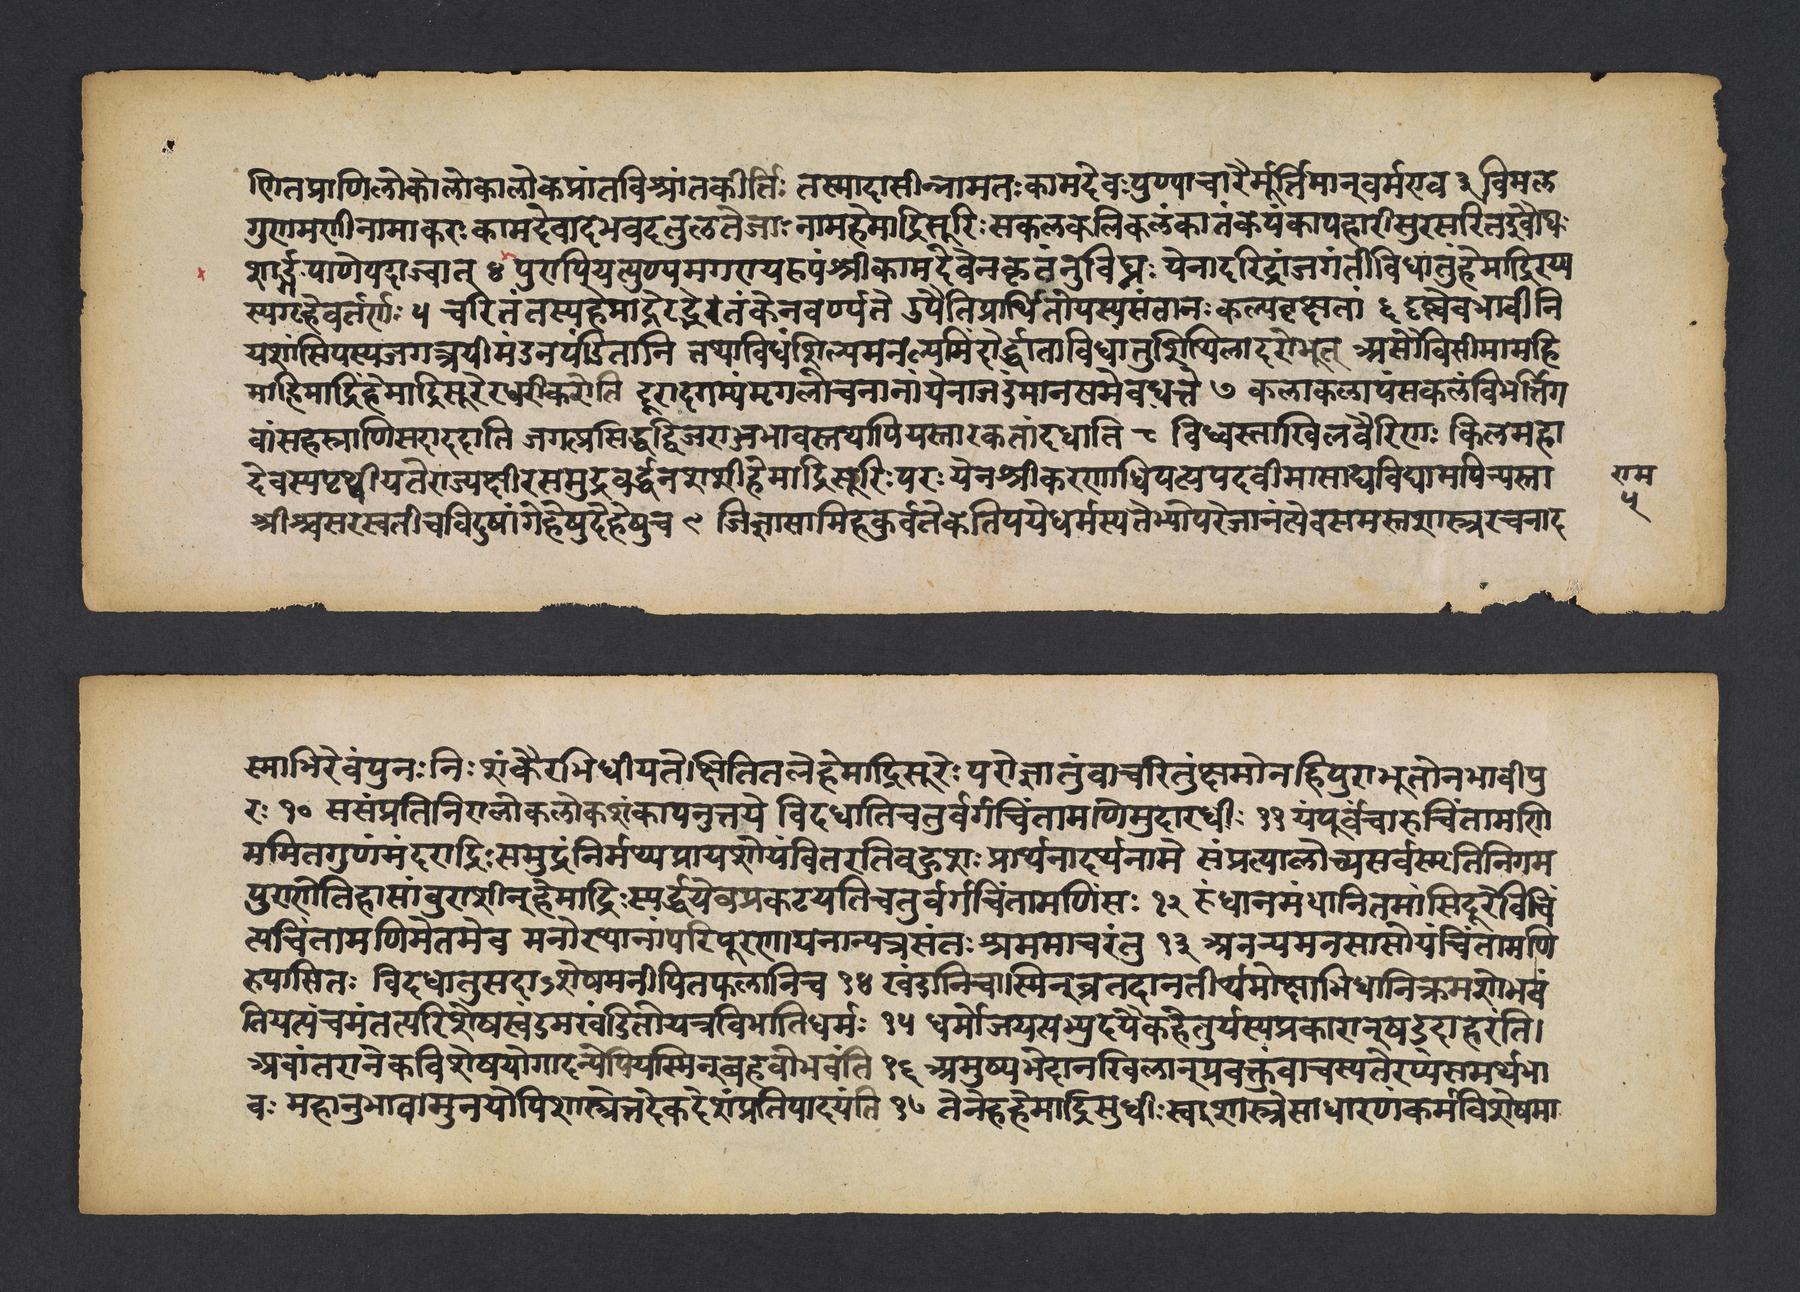 णितप्राणिलोकोलोकालोकप्रांतविश्रांतकीर्तिः तस्मादासीन्नामतःकामदेवःपुण्याचारैर्मूर्तिमान्वर्मराव ३ विमल
गुणमणीनामाकरः कामदेवादभवदतुलतेजाः नामहेमाद्रिसूरिः सकलकलिकलंकातंकपंकापहारीसुरसरितइवौघः
शार्ङ्गपाणेपदाज्वात् ४ पुरापियत्पुण्यमगण्यरुपंश्रीकामदेवेनकृतंनुविघ्नः येनादरिद्रांजगंतीविधातुंहेमाद्रिरप्य
स्यगृहेवर्तर्णः ५ चरितंतस्यहेमाद्रेरद्रुतंकेनवर्ण्यते ऽपैतिप्रार्थितोयस्यसंतानःकल्पवृक्षतां ६ दृष्ट्वेवभावीनि
यशांसियस्यजगत्त्रयीमंडनपंडितानि तथाविधंशिल्पमनल्पमिंदोर्द्धाताविधातुशिथिलादरोभूत् असौविसीमामहि
माहिमाद्रिंहेमाद्रिसूरेरधरीकरोति दूरादगम्यंमृगलोचनानांयेनाजडंमानसमेवधत्ते ७ कलाकलापंसकलंविभर्तिग
वांसहस्त्राणिसदाददाति जगत्प्रसिद्धद्विजराजभावस्तथापियस्नारकतांदधाति ८ विध्वस्ताखिलवैरिणः किलमहा
देवस्यपृथ्वीपतेराज्यक्षीरसमुद्रवर्द्धनशशीहेमाद्रिसूरिःपरः येनश्रीकरणाधिपत्यपदवीमासाद्यविद्यामपिन्यस्ता
श्रीश्चसरस्वतीचविदुषांगेहेषुदेहेषुच ९ जिज्ञासामिहकुर्वतेकतिपयेधर्मस्यतेभ्योपरेजानंत्येवसमस्तशास्त्ररचनाद
राम
५
स्माभिरेवंपुनः निःशंकैरभिधीयतेक्षितितलेहेमाद्रिसूरेः परोज्ञातुंवाचरितुंक्षमोनहिपुराभूतोनभावीपु
रः १० ससंप्रतिनिरालोकलोकशंकापनुत्तये विदधातिचतुर्वर्गचिंतामणिमुदारधीः ११ यंपूर्वंचारुचिंतामणि
ममितगुणंमंदराद्रिःसमुद्रंनिर्मथ्यप्रायशोयंवितरतिवहुशः प्रार्थ्यनादर्थ्यनामे संप्रत्यालोच्यसर्वस्मृतिनिगम
पुराणेतिहासांवुराशीन्हेमाद्रिःस्पर्द्धयेवप्रकटयतिचतुर्वर्गचिंतामणिंसः १२ रुंधानमंधानितमांसिदूरेविचिं
त्यचिंतामणिमेतमेव मनोरथानांपरिपूरणायनान्यत्रसंतः श्रममाचरंतु १३ अनन्यमनसासोयंचिंतामणि
रुपासितः विदधातुसदाऽशेषमनीषितफलानिच १४ खंडानिचास्मिन्व्रतदानतीर्थमोक्षाभिधानिक्रमशोभवं
तियत्पंचमंतत्परिशेषखंडमखंडितोयत्रविभातिधर्मः १५ धर्मोजयत्सभ्युदयैकहेतुर्यस्यप्रकारान्षडुदाहरंति।
अवांतरानेकविशेषयोगादन्येपियस्मिन्वहवोभवंति १६ अमुष्यभेदानखिलान्प्रवक्तुंवाचस्पतेरप्यसमर्थभा
वः महानुभावामुनयोपिशास्त्रेत्तदेकदेशंप्रतिपादयंति १७ तेनेहहेमाद्रिसुधीःस्वशास्त्रेसाधारणंकर्मविशेषमा